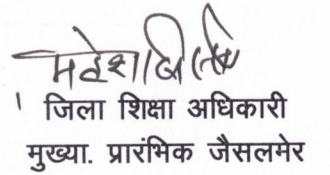 जिला शिक्षा अधिकारी
मुख्या. प्रारंभिक जैसलमेर